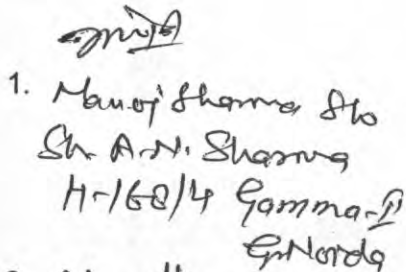 1. Manoj Sharma S/o
Sh. A.N. Sharma
H-168/4 Gamma-II
G.Noida